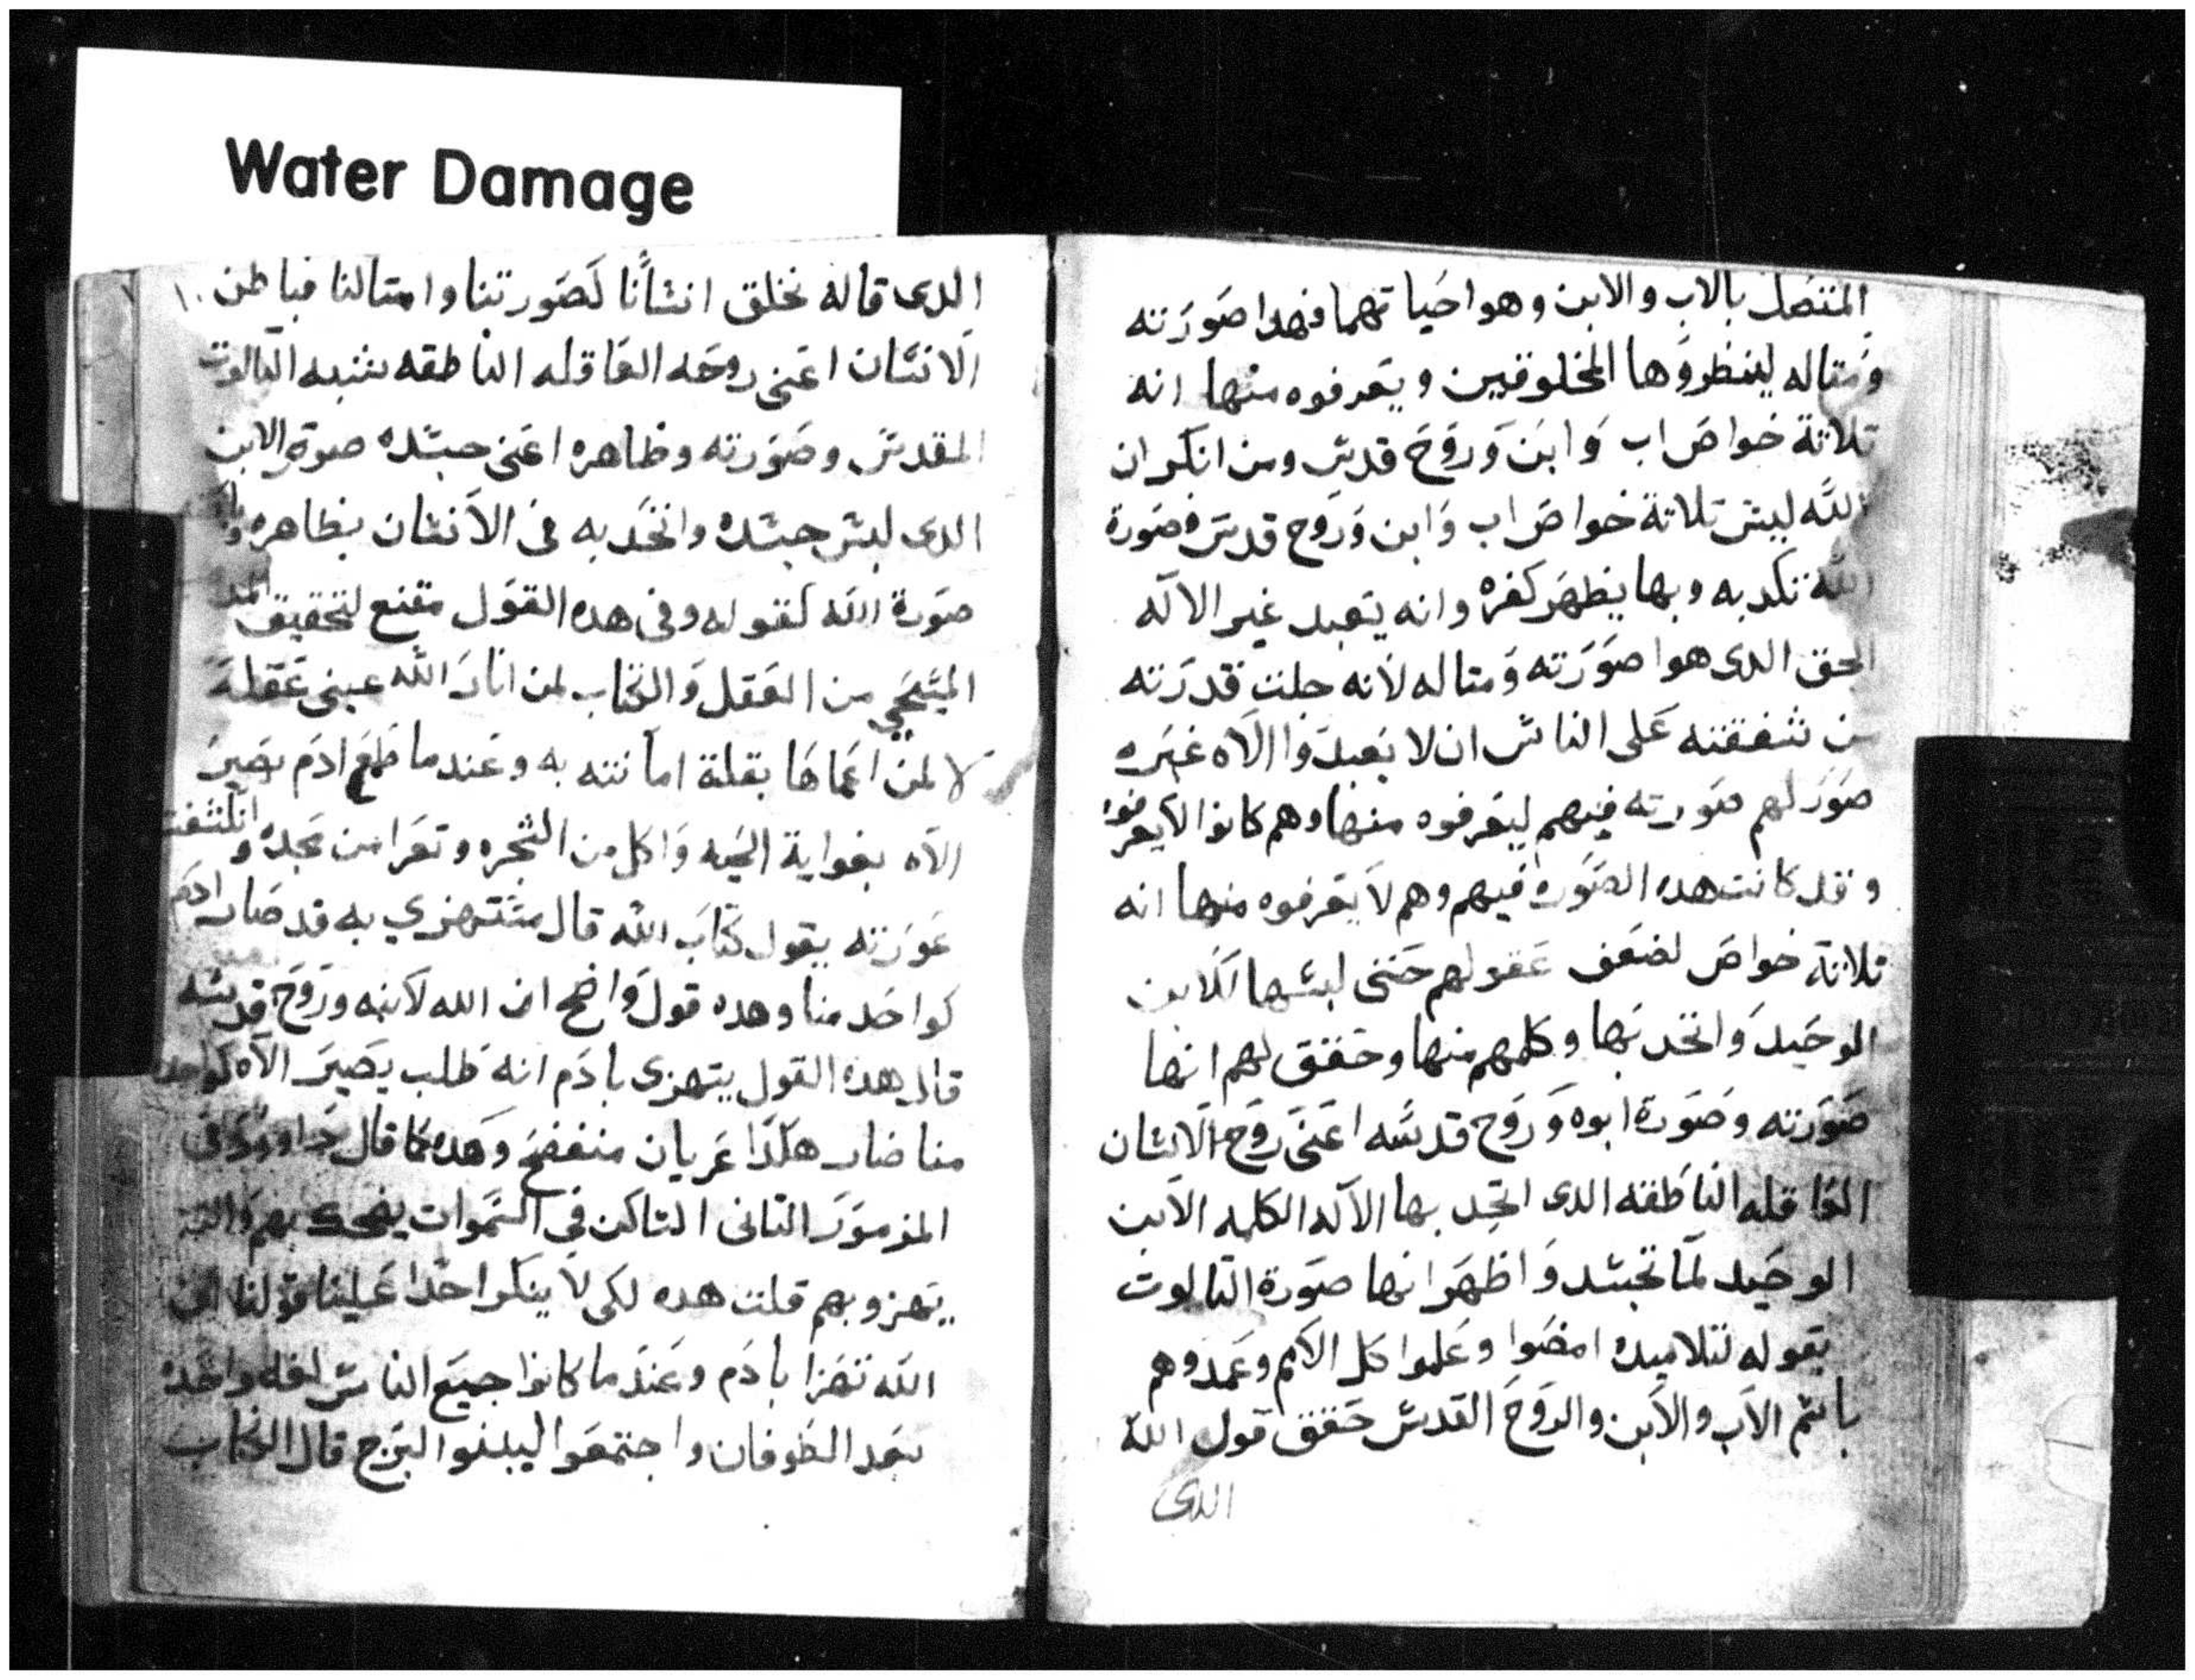 Water Damage
المتصل بالاب والابن وهوا حياتهما فهدا صورته
ومتاله لينظروها المخلوقين ويعرفوه منها انه
تلاتة خواص اب وابن وروح قدس ومن انكر ان
الله ليس تلاتة خواص اب وابن وروح قدس فصورة
الله تكدبه وبها يظهر كفره وانه يعبد غير الاله
الحق الدى هوا صورته ومتاله لانه جلت قدرته
من شفقته على الناس ان لا يعبدوا الاه غيره
صور لهم صورته فيهم ليعرفوه منها وهم كانوا لا يعرفوه
وقد كانت هده الصوره فيهم وهم لا يعرفوه منها انه
تلاتة خواص لضعف عقولهم حتى لبسها الابن
الوحيد واتحد بها وكلمهم منها وحقق لهم انها
صورته وصورة ابوه وروح قدسه اعنى روح الانسان
العاقله الناطقه الدى اتحد بها الاله الكلمه الابن
الوحيد لما تجسد واظهر انها صورة التالوت
بقوله لتلاميده امضوا وعلموا كل الامم وعمدوهم
باسم الاب والابن والروح القدس حقق قول الله
الدى
١٠
الدى قاله نخلق انسانا كصورتنا وامتالنا فباطن
الانسان اعنى روحه العاقله الناطقه يشبه التالوت
المقدس وصورته وظاهره اعنى جسده صورة الابن
الدى لبس جسده واتحد به فى الانسان بظاهره
صورة الله كقوله وفى هده القول مقنع لتحقيق
المسيحي من العقل والكتاب لمن انار الله عينى عقله
لا لمن اعماها بقلة امانته به وعندما طمع ادم يصير
الاه بغواية الحيه واكل من الشجره وتعرا من مجده وانكشفت
عورته يقول كتاب الله قال مستهزي به قد صار ادم
كواحد منا وهده قول واضح ان الله لابنه وروح قدسه
قال هده القول يتهزى بادم انه طلب يصير الاه كواحد
منا صار هكدا عريان منفضح وهده كما قال داوود فى
المزمور التانى الساكن فى السموات يضحك بهم والرب
يتهزو بهم قلت هده لكى لا ينكر احدا علينا قولنا ان
الله تهزا بادم وعندما كانوا جميع الناس لغه واحده
بعد الطوفان واجتمعوا ليبنوا البرج قال الكتاب